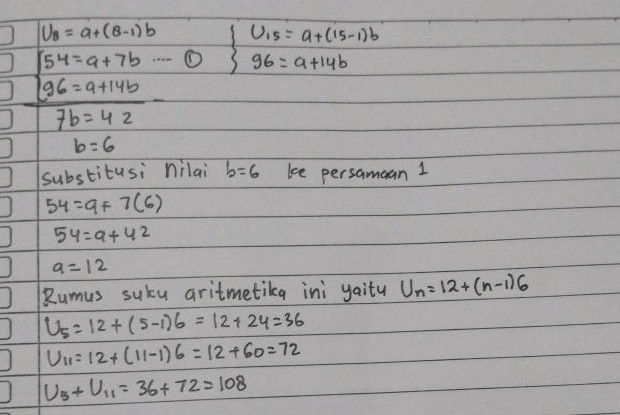 U8 = a+(8-1)b { U15 = a+(15-1)b
54 = a+7b .... ① } 96 = a+14b
96 = a+14b
7b = 42
b = 6
Substitusi nilai b=6 ke persamaan 1
54 = a + 7(6)
54 = a+42
a = 12
Rumus suku aritmetika ini yaitu Un = 12+(n-1)6
U5 = 12+(5-1)6 = 12+24=36
U11 = 12+(11-1)6 = 12+60=72
U5+U11 = 36+72=108